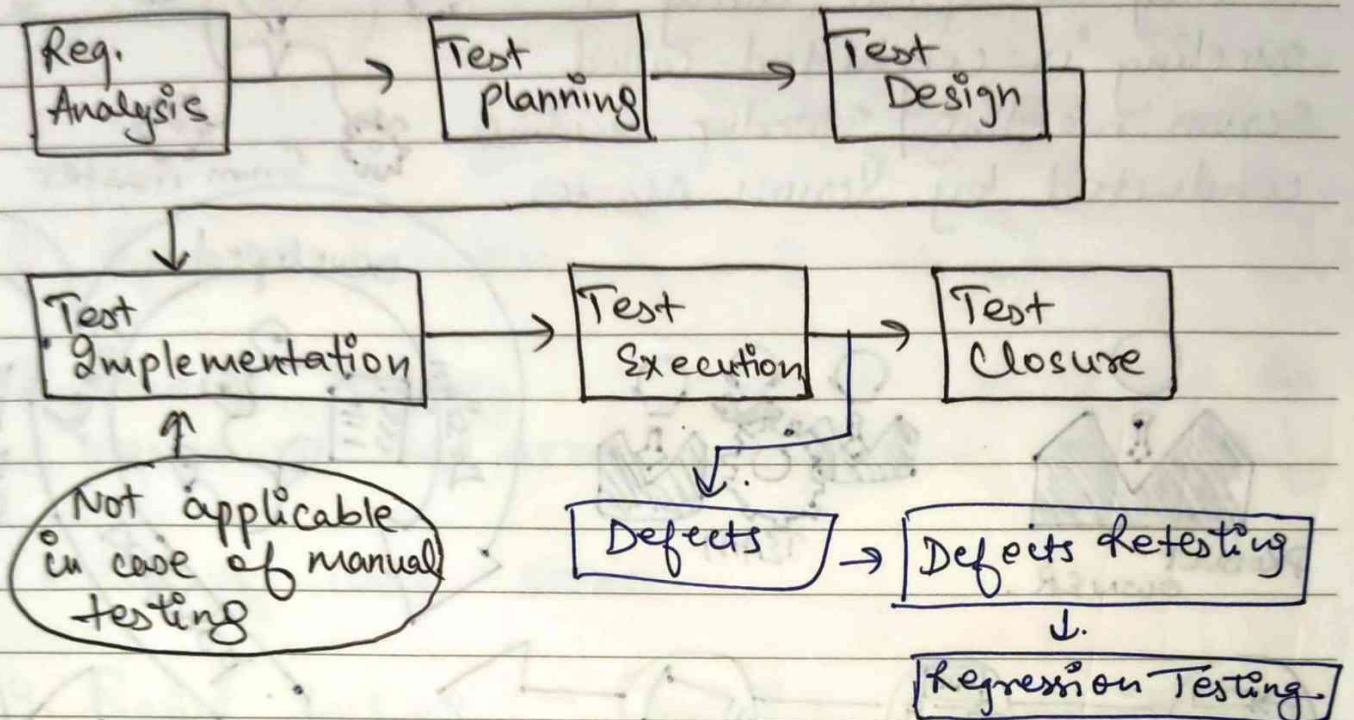 Req.
Analysis
Test
planning
Test
Design
Test
Implementation
Test
Execution
Test
Closure
Not applicable
in case of manual
testing
Defects
Defects Retesting
Regression Testing.